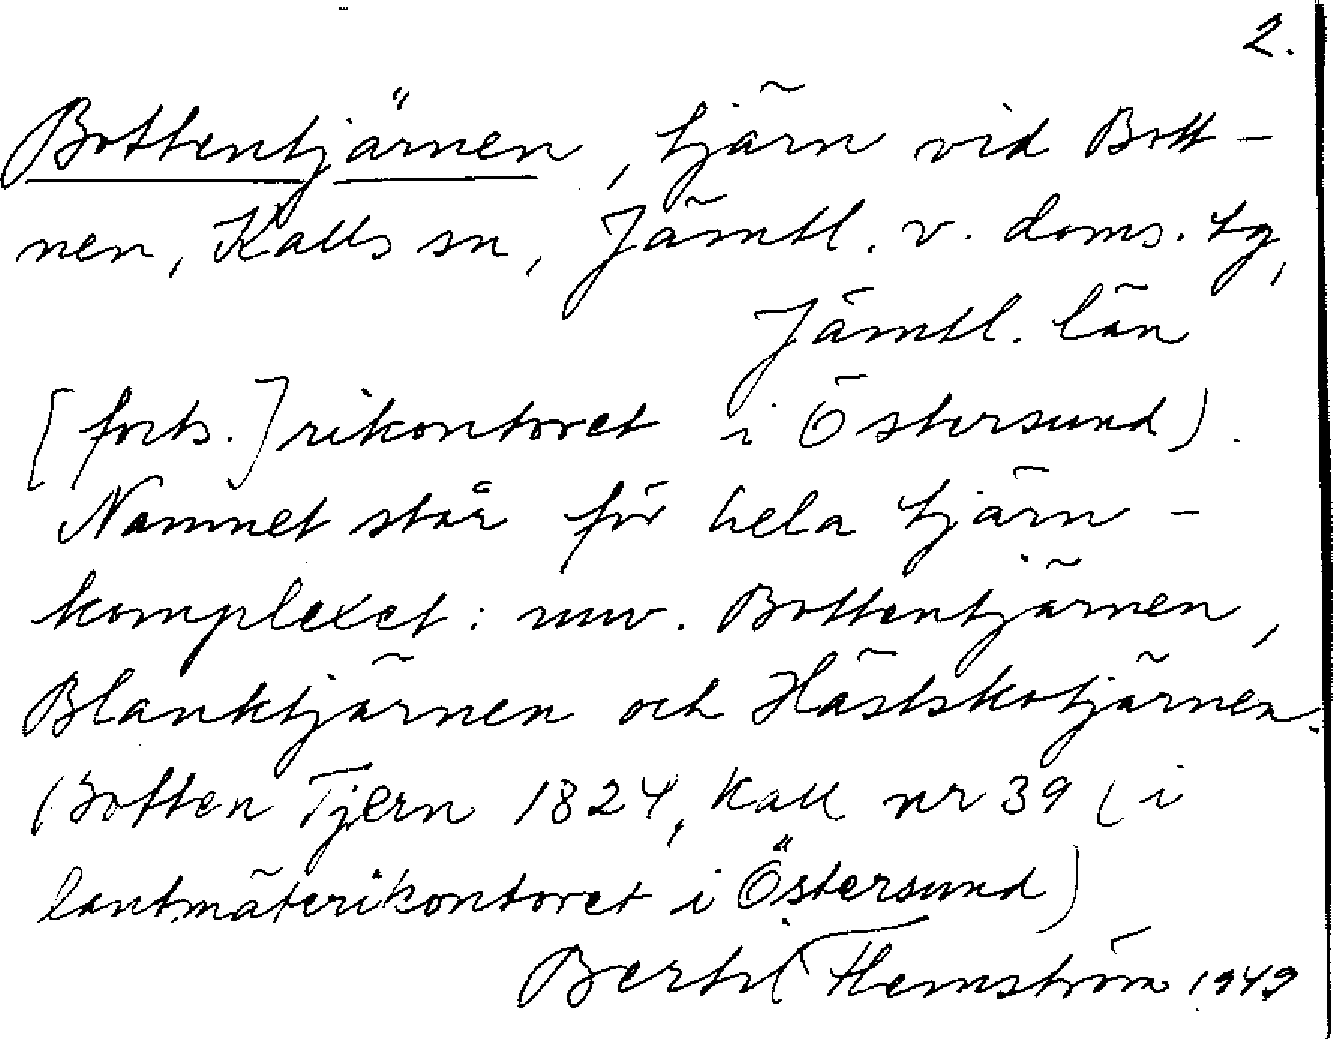 2.
Bottentjärnen, tjärn vid Bott-
nen, Kalls sn, Jämtl. v. doms. tg,
Jämtl. län
[forts.] rikontoret i Östersund).
Namnet står för hela tjärn-
komplexet: nuv. Bottentjärnen,
Blanktjärnen och Hästskotjärnen.
(Botten Tjern 1824, Kall nr 39 (i
lantmäterikontoret i Östersund)
Bertil Flemström 1949